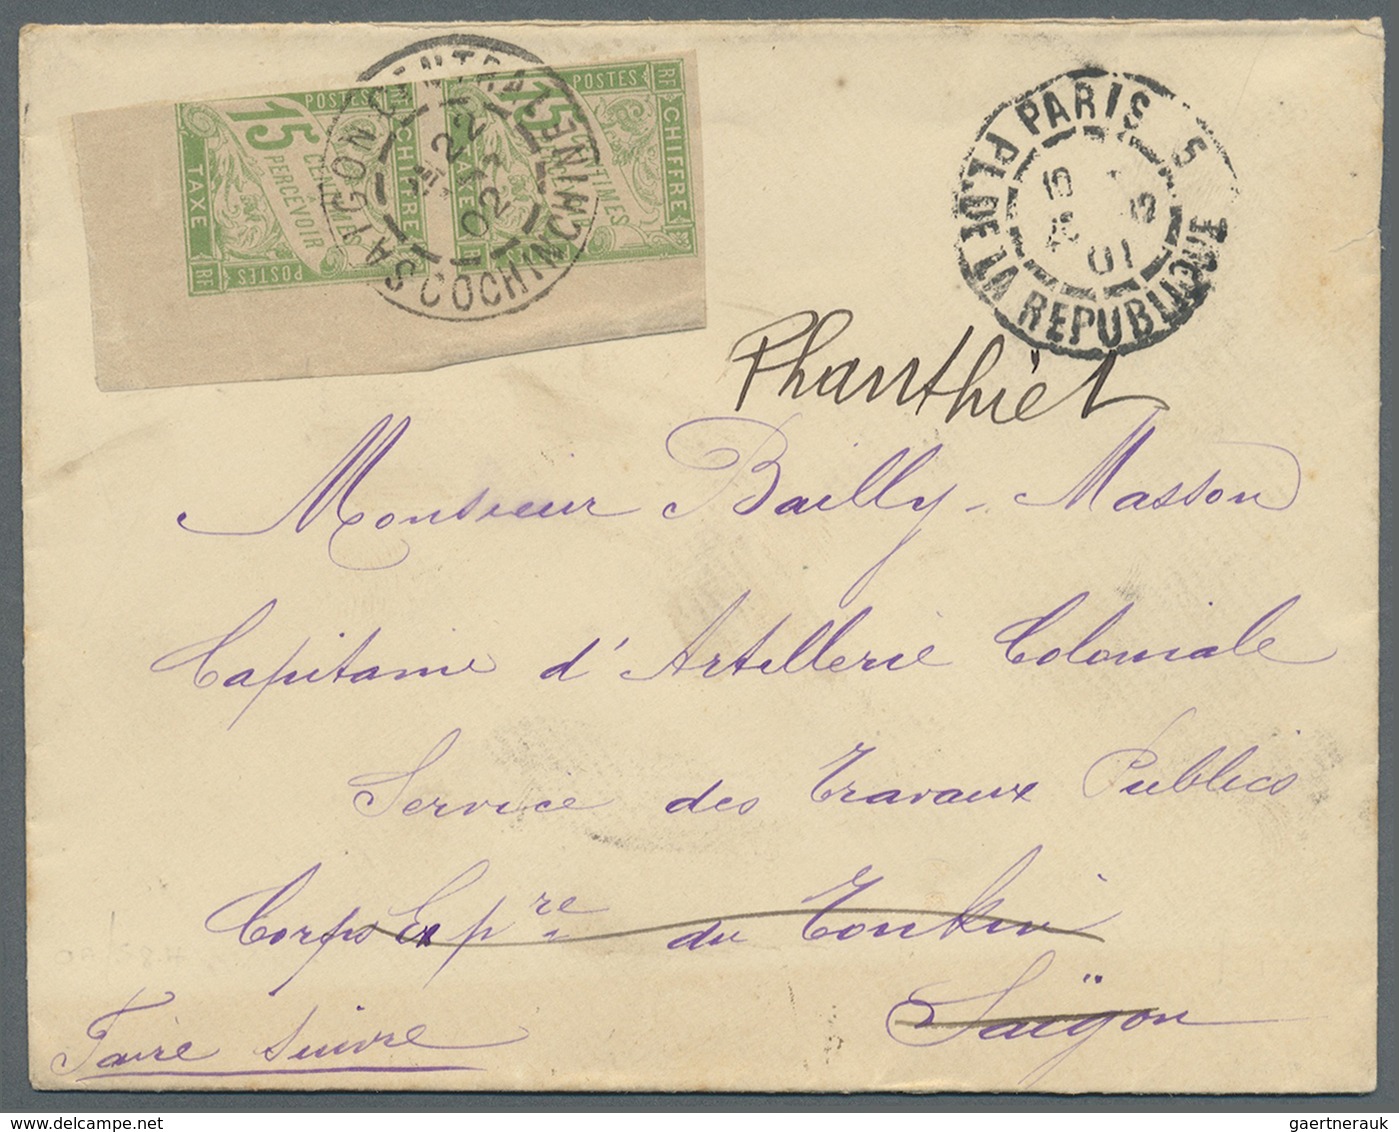 POSTES RF
15
CENTIMES
PERCEVOIR
CHIFFRE
TAXE
RF POSTES
POSTES RF
15
CENTIMES
CHIFFRE
TAXE
SAIGON CENTRAL COCHINCHINE
22
02
PARIS 5
PL. DE LA REPUBLIQUE
01
Phanthièt
Monsieur Bailly-Masson
Capitaine d'Artillerie Coloniale
Service des Travaux Publics
Corps Expre du Tonkin
Saïgon
Faire suivre
gaertnerauk / HipStamp.com